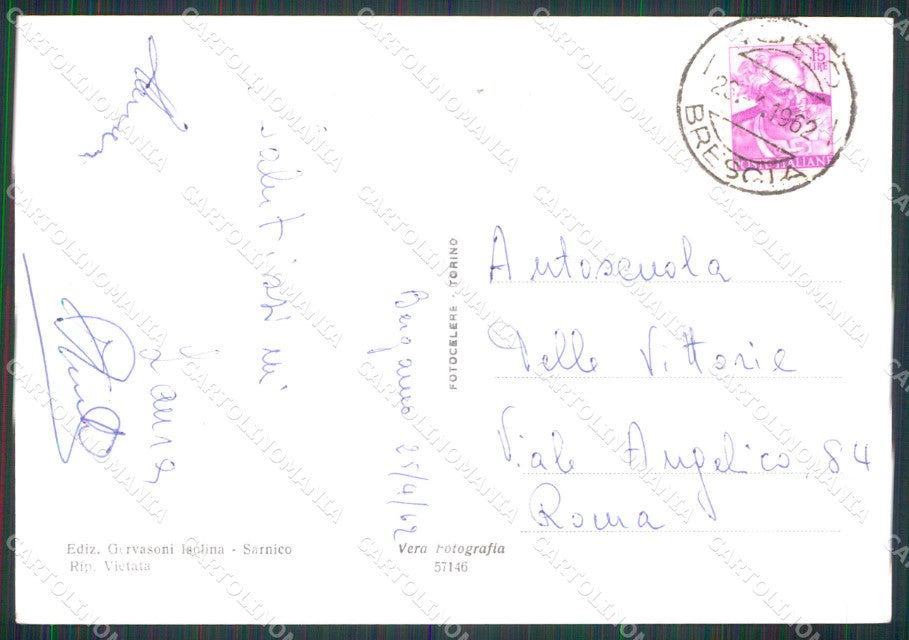 Bergamo 25/4/62
Salutissimi
Laura
Autoscuola
Delle Vittorie
Viale Angelico, 84
Roma
FOTOCELERE · TORINO
Ediz. Gervasoni Isolina - Sarnico
Rip. Vietata
Vera Fotografia
57146
1962
BRESCIA
15
LIRE
POSTE ITALIANE
CARTOLINOMANIA